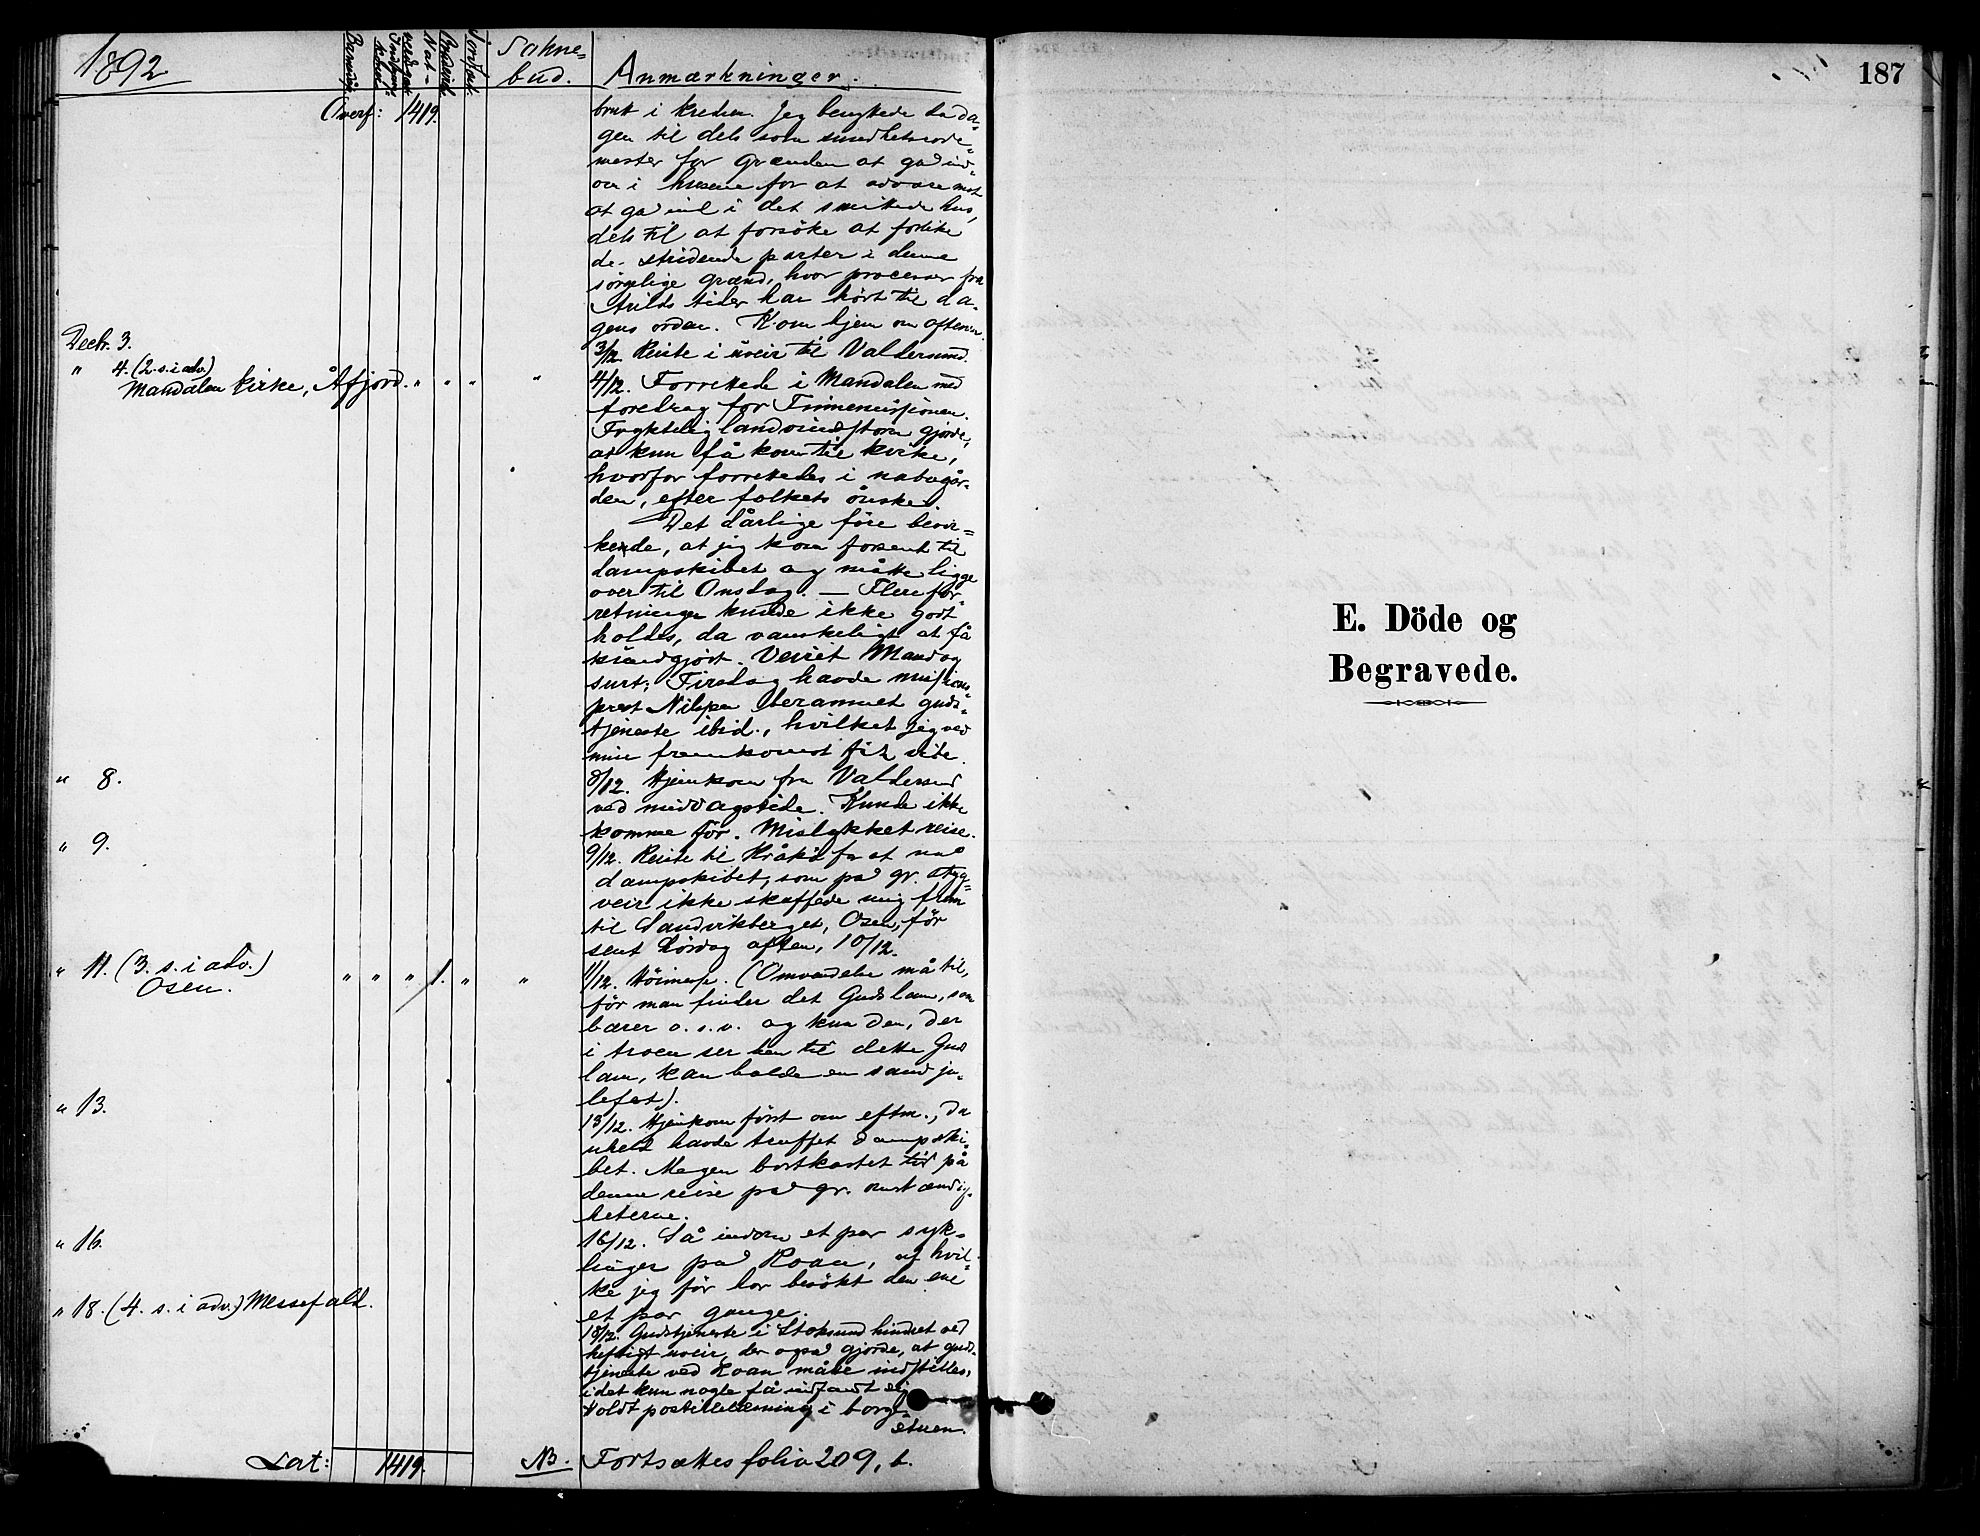 1892
Sokne-
bud.
Anmærkninger.
Overf: 1419.
bruk i kredsen. Jeg benyttede da da-
gen til dels som sundhetsrode-
mester for Grænden at gå ind-
om i husene for at advare mot
at gå ind i det smittede hus,
dels til at forsöke at forlike
de stridende parter i denne
sörgelige grænd, hvor processer fra
Arilds tider har hört til da-
gens orden. Kom hjem om aftenen.
Decbr. 3.
3/12 Reiste i uveir til Valdersund.
" 4. (2. s. i adv.)
Mandalen kirke, Åfjord. " " " "
4/12. Forrettede i Mandalen med
foredrag for Finnemissionen.
Frygtelig landvindstorm gjorde,
at kun få kom til kirke,
hvorfor forrettedes i nabogår-
den, efter folkets önske.
Det dårlige före bevir-
kede, at jeg kom forsent til
dampskibet og måtte ligge
over til Onsdag. — Flere for-
retninger kunde ikke godt
holdes, da vanskeligt at få
kundgjort. Veiret Mandag
surt; Tirsdag havde missions-
prest Nilssen berammet guds-
tjeneste ibid., hvilket jeg ved
min fremkomst fik vite.
" 8.
8/12. Hjemkom fra Valdersund
ved middagstide. Kunde ikke
komme för. Mislykket reise.
" 9.
9/12. Reiste til Kråkö for at nå
dampskibet, som på gr. styg-
veir ikke skaffede mig frem
til Sandvikberget, Osen, för
sent Lördag aften, 10/12.
" 11. (3. s. i adv.)
Osen.
" " " 1. " "
11/12. Höimesse. (Omvendelse må til,
för man finder det Guds lam, som
bærer o. s. v. og kun den, der
i troen ser hen til dette Guds
lam, kan holde en sand ju-
lefest).
" 13.
13/12. Hjemkom först om eftm., da
uheld havde truffet dampski-
bet. Megen bortkastet tid på
denne reise på gr. omstændig-
heterne.
" 16.
16/12. Så indom et par syk-
linger på Roan, af hvil-
ke jeg för har besökt den ene
et par gange.
" 18. (4. s. i adv.) Messefald.
18/12. Gudstjeneste i Stoksund hindret ved
heftigt uveir, der også gjorde, at guds-
tjeneste ved Roan måtte indstilles,
idet kun nogle få indfandt sig.
Holdt postillelæsning i borg-
stuen.
Lat: 1419.
NB. Fortsættes folio 209, b.
187
E. Döde og
Begravede.